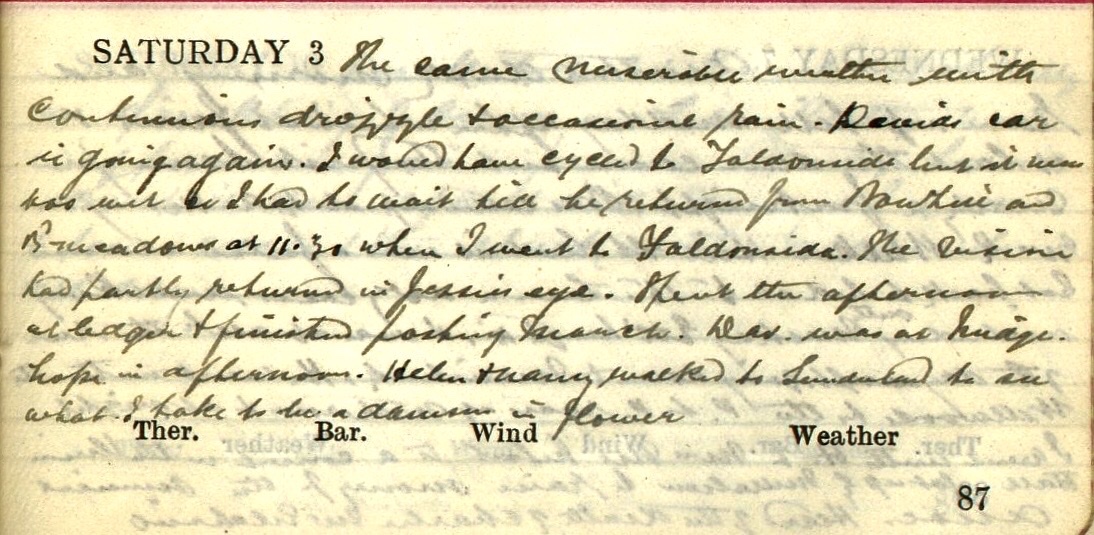 SATURDAY 3 The same miserable weather with
continuous drizzle & occasional rain. Davids car
is going again. I would have cycled to Faldonside but it was
too wet so I had to wait till he returned from and
B'meadows at 11.30 when I went to Faldonside. The vision
had partly returned in Jessies eye. Spent the afternoon
at ledger & finished posting March. Dav. was at Midge-
hope in afternoon. Helen & Nancy walked to Sunderland to see
what I take to be a damson in flower
Ther. Bar. Wind Weather
87